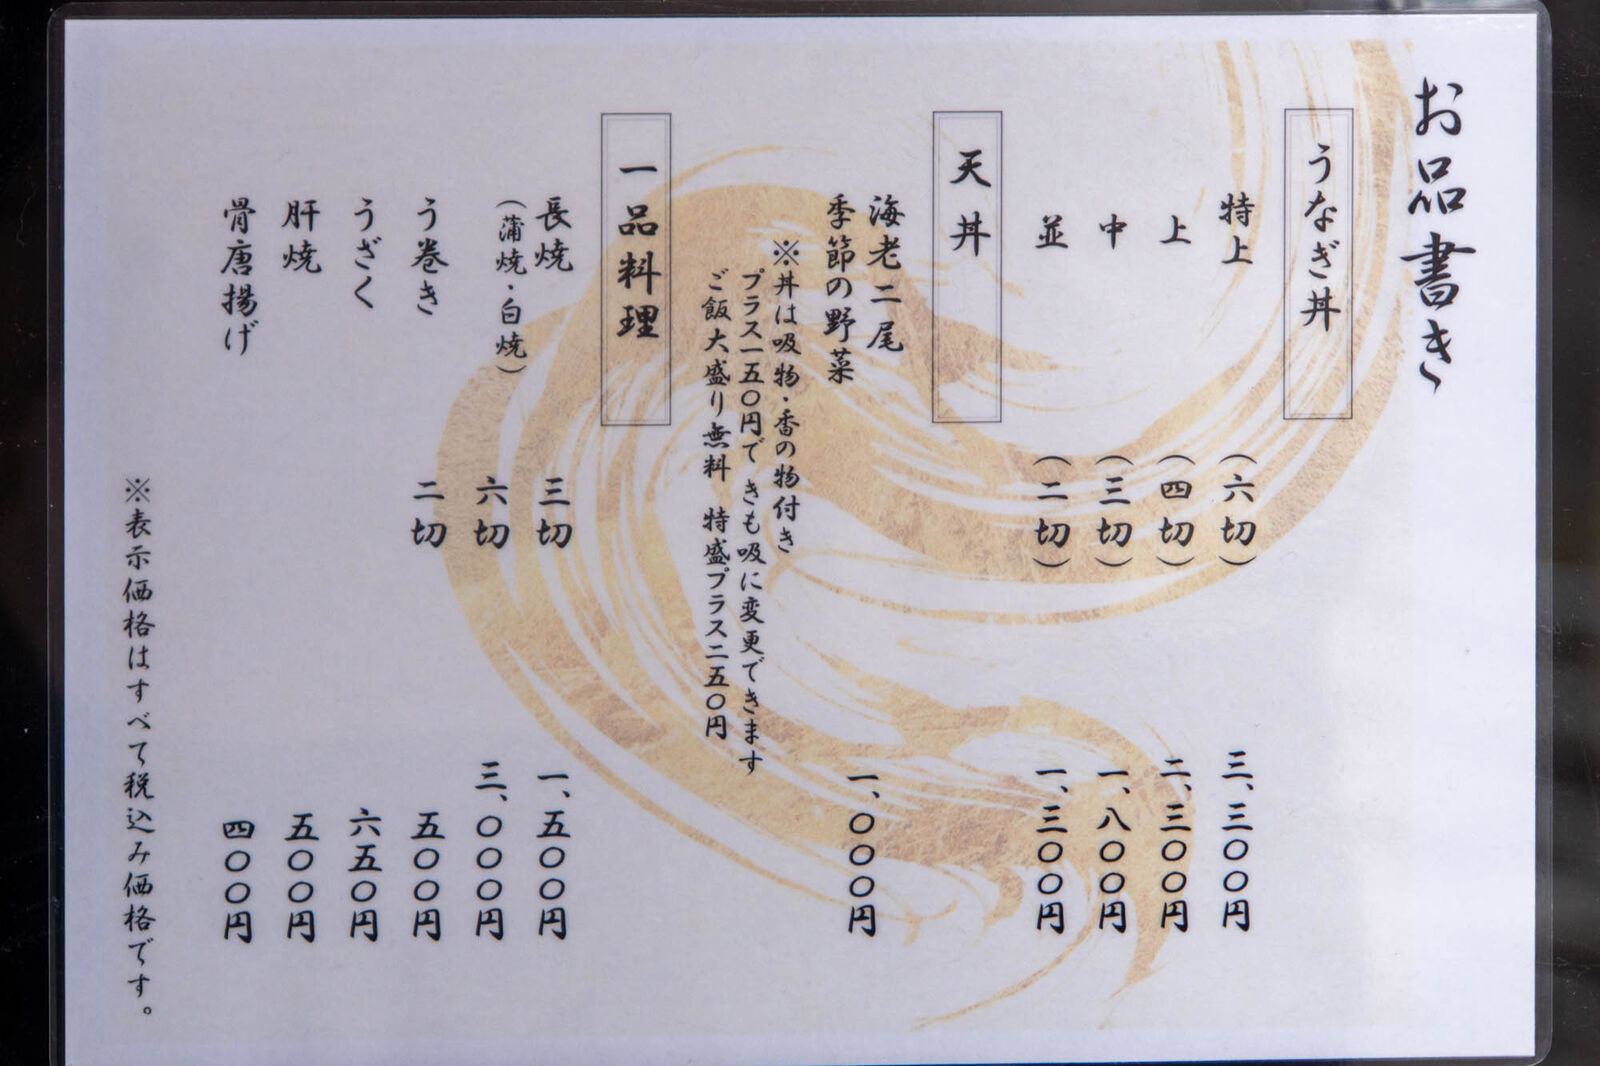 お品書き
うなぎ丼
特上 (六切) 三、三〇〇円
上 (四切) 二、三〇〇円
中 (三切) 一、八〇〇円
並 (二切) 一、三〇〇円
天丼
海老二尾
季節の野菜 一、〇〇〇円
※丼は吸物・香の物付き
プラス一五〇円で きも吸に変更できます
ご飯大盛り無料 特盛プラス二五〇円
一品料理
長焼 三切 一、五〇〇円
(蒲焼・白焼) 六切 三、〇〇〇円
う巻き 二切 五〇〇円
うざく 六五〇円
肝焼 五〇〇円
骨唐揚げ 四〇〇円
※表示価格はすべて税込み価格です。